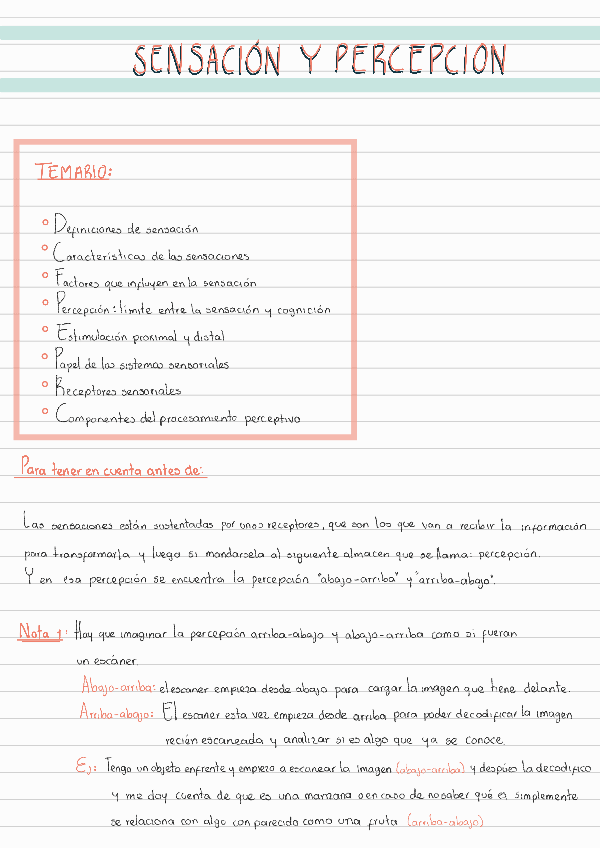 SENSACIÓN Y PERCEPCION
TEMARIO:
Definiciones de sensación
Características de las sensaciones
Factores que influyen en la sensación
Percepción: límite entre la sensación y cognición
Estimulación proximal y distal
Papel de los sistemas sensoriales
Receptores sensoriales
Componentes del procesamiento perceptivo
Para tener en cuenta antes de:
Las sensaciones están sustentadas por unos receptores, que son los que van a recibir la información
para transformarla y luego si mandarsela al siguiente almacen que se llama: percepción.
Y en esa percepción se encuentra la percepción "abajo-arriba" y "arriba-abajo".
Nota 1: Hay que imaginar la percepción arriba-abajo y abajo-arriba como si fueran
un escáner.
Abajo-arriba: el escaner empieza desde abajo para cargar la imagen que tiene delante.
Arriba-abajo: El escaner esta vez empieza desde arriba para poder decodificar la imagen
recién escaneada y analizar si es algo que ya se conoce.
Ej: Tengo un objeto enfrente y empiezo a escanear la imagen (abajo-arriba) y despúes la decodifico
y me doy cuenta de que es una manzana o en caso de no saber qué es, simplemente
se relaciona con algo con parecido como una fruta (arriba-abajo)